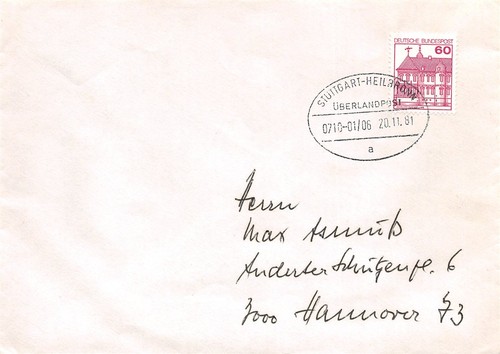 DEUTSCHE BUNDESPOST
60
STUTTGART-HEILBRONN
ÜBERLANDPOST
0710-01/06 20.11.81
a
Herrn
Max Asmuß
Anderter Schützenpl. 6
3000 Hannover 73